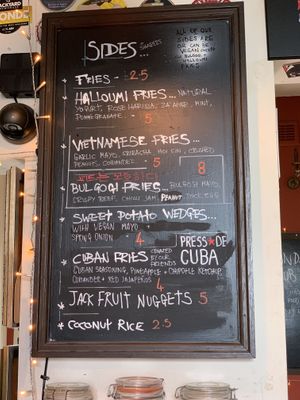 SIDES...
ALL OF OUR
SIDES ARE
OR CAN BE
FRIES - 2.5
HALLOUMI FRIES... NATURAL
YOGURT, ROSE HARISSA, ZA'ATAR, MINT,
POMEGRANATE. 5
VIETNAMESE FRIES...
GARLIC MAYO, SRIRACHA, HOI SIN, CRUSHED
PEANUTS, CORIANDER. 5
8
BULGOGI FRIES... BULGOGI MAYO,
CRISPY CHILLI JAM, PEANUT,
SWEET POTATO WEDGES...
WITH VEGAN MAYO
SPRING ONION 4
CUBAN FRIES CURATED
BY OUR
FRIENDS
PRESS★DE
CUBA
CUBAN SEASONING, PINEAPPLE + CHIPOTLE KETCHUP,
CORIANDER + RED JALAPEÑOS 4
JACK FRUIT NUGGETS 5
COCONUT RICE 2.5